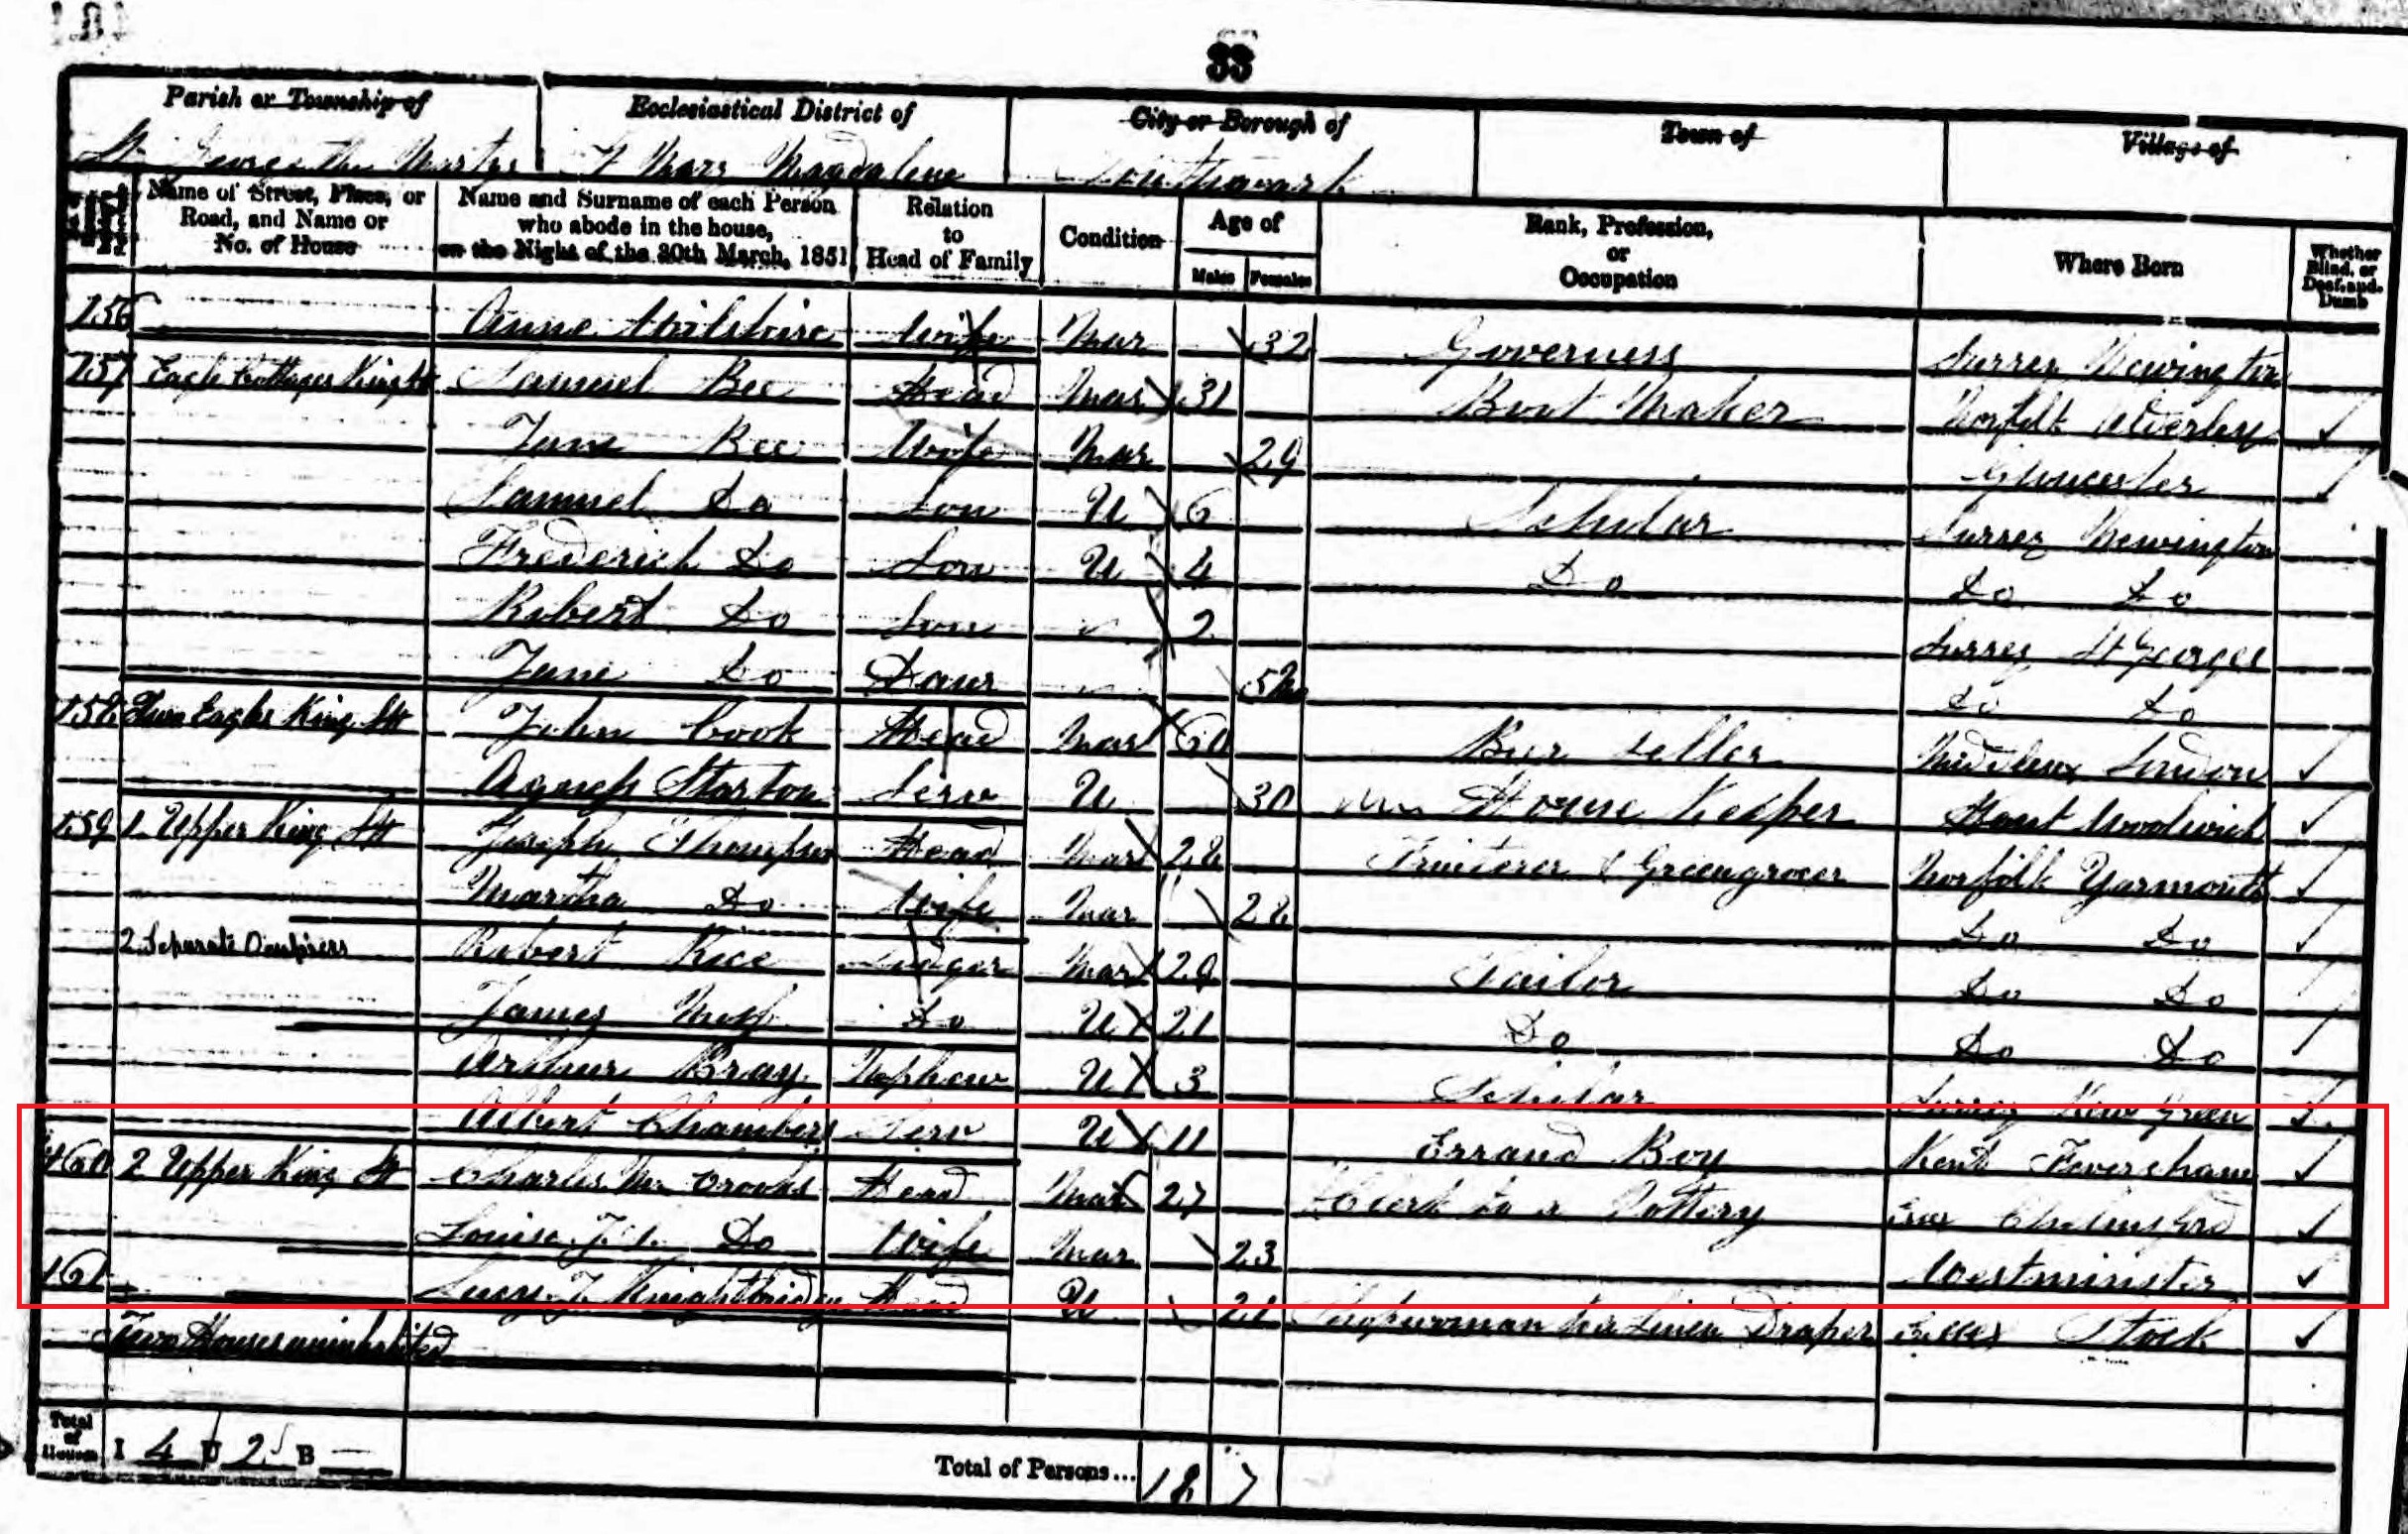 33
Parish or Township of Ecclesiastical District of City or Borough of Town of Village of
St George the Martyr St Mary Magdalene Southwark
Name of Street, Place, or Road, and Name or No. of House Name and Surname of each Person who abode in the house, on the Night of the 30th March, 1851 Relation to Head of Family Condition Age of Males Females Rank, Profession, or Occupation Where Born Whether Blind, or Deaf-and-Dumb
156 Anne Wilshire Wife Mar 32 Governess Surrey Newington
157 Eagle Cottages King St Samuel Bee Head Mar 31 Boot Maker Norfolk
Jane Bee Wife Mar 29 Gloucester
Samuel Do Son U 6 Scholar Surrey Newington
Frederick Do Son U 4 Do Do Do
Robert Do Son 2 Surrey St Georges
Jane Do Daur 5 Mo Do Do
158 Two Eagles King St John Cook Head Mar 60 Beer Seller Middlesex London
Agness Storton Serv U 30 House Keeper Kent Woolwich
159 1 Upper King St Joseph Thompson Head Mar 28 Fruiterer & Greengrocer Norfolk Yarmouth
Martha Do Wife Mar 28 Do Do
2 Separate Occupiers Robert Rice Lodger Mar 29 Tailor Do Do
James Do U 21 Do Do Do
Arthur Bray Nephew U 3 Scholar Surrey Kew Green
Albert Chambers Serv U 11 Errand Boy Kent Feversham
160 2 Upper King St Charles Mc Crooks Head Mar 27 Clerk to a Pottery Chelmsford
Louisa Do Wife Mar 23 Westminster
161 Lucy J Knightbridge Head U Shopwoman to a Linen Draper Essex Stock
Two Houses uninhabited
Total of Houses I 4 U 2 B — Total of Persons... 18 7